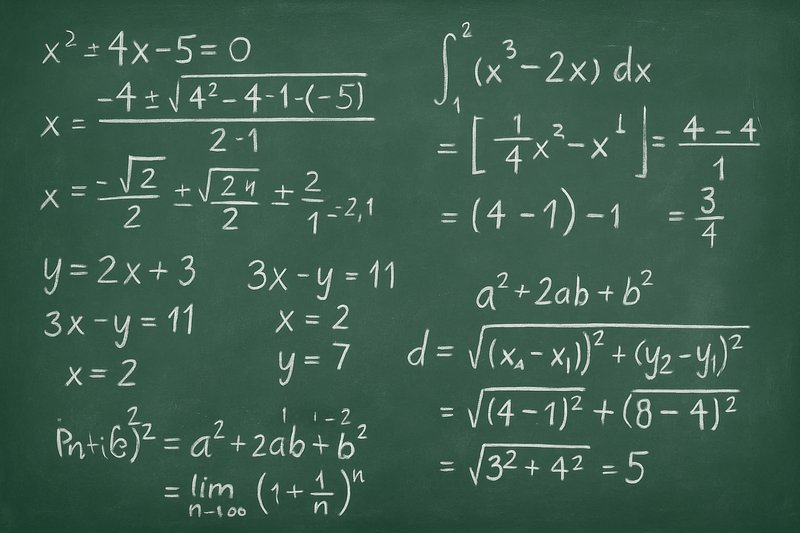 x² ± 4x − 5 = 0
x = (−4 ± √(4² − 4 − 1 − (−5))) / (2 · 1)
x = (−√2)/2 ± √(2 4)/2 ± 2/1 = −2,1
y = 2x + 3
3x − y = 11
x = 2
3x − y = 11
x = 2
y = 7
= a² + 2ab + b²
= lim n−100 (1 + 1/n)ⁿ
∫₁² (x³ − 2x) dx
= [1/4 x² − x¹] = (4 − 4)/1
= (4 − 1) − 1 = 3/4
a² + 2ab + b²
d = √((x₄ − x₁))² + (y₂ − y₁)²
= √(4 − 1)² + (8 − 4)²
= √3² + 4² = 5